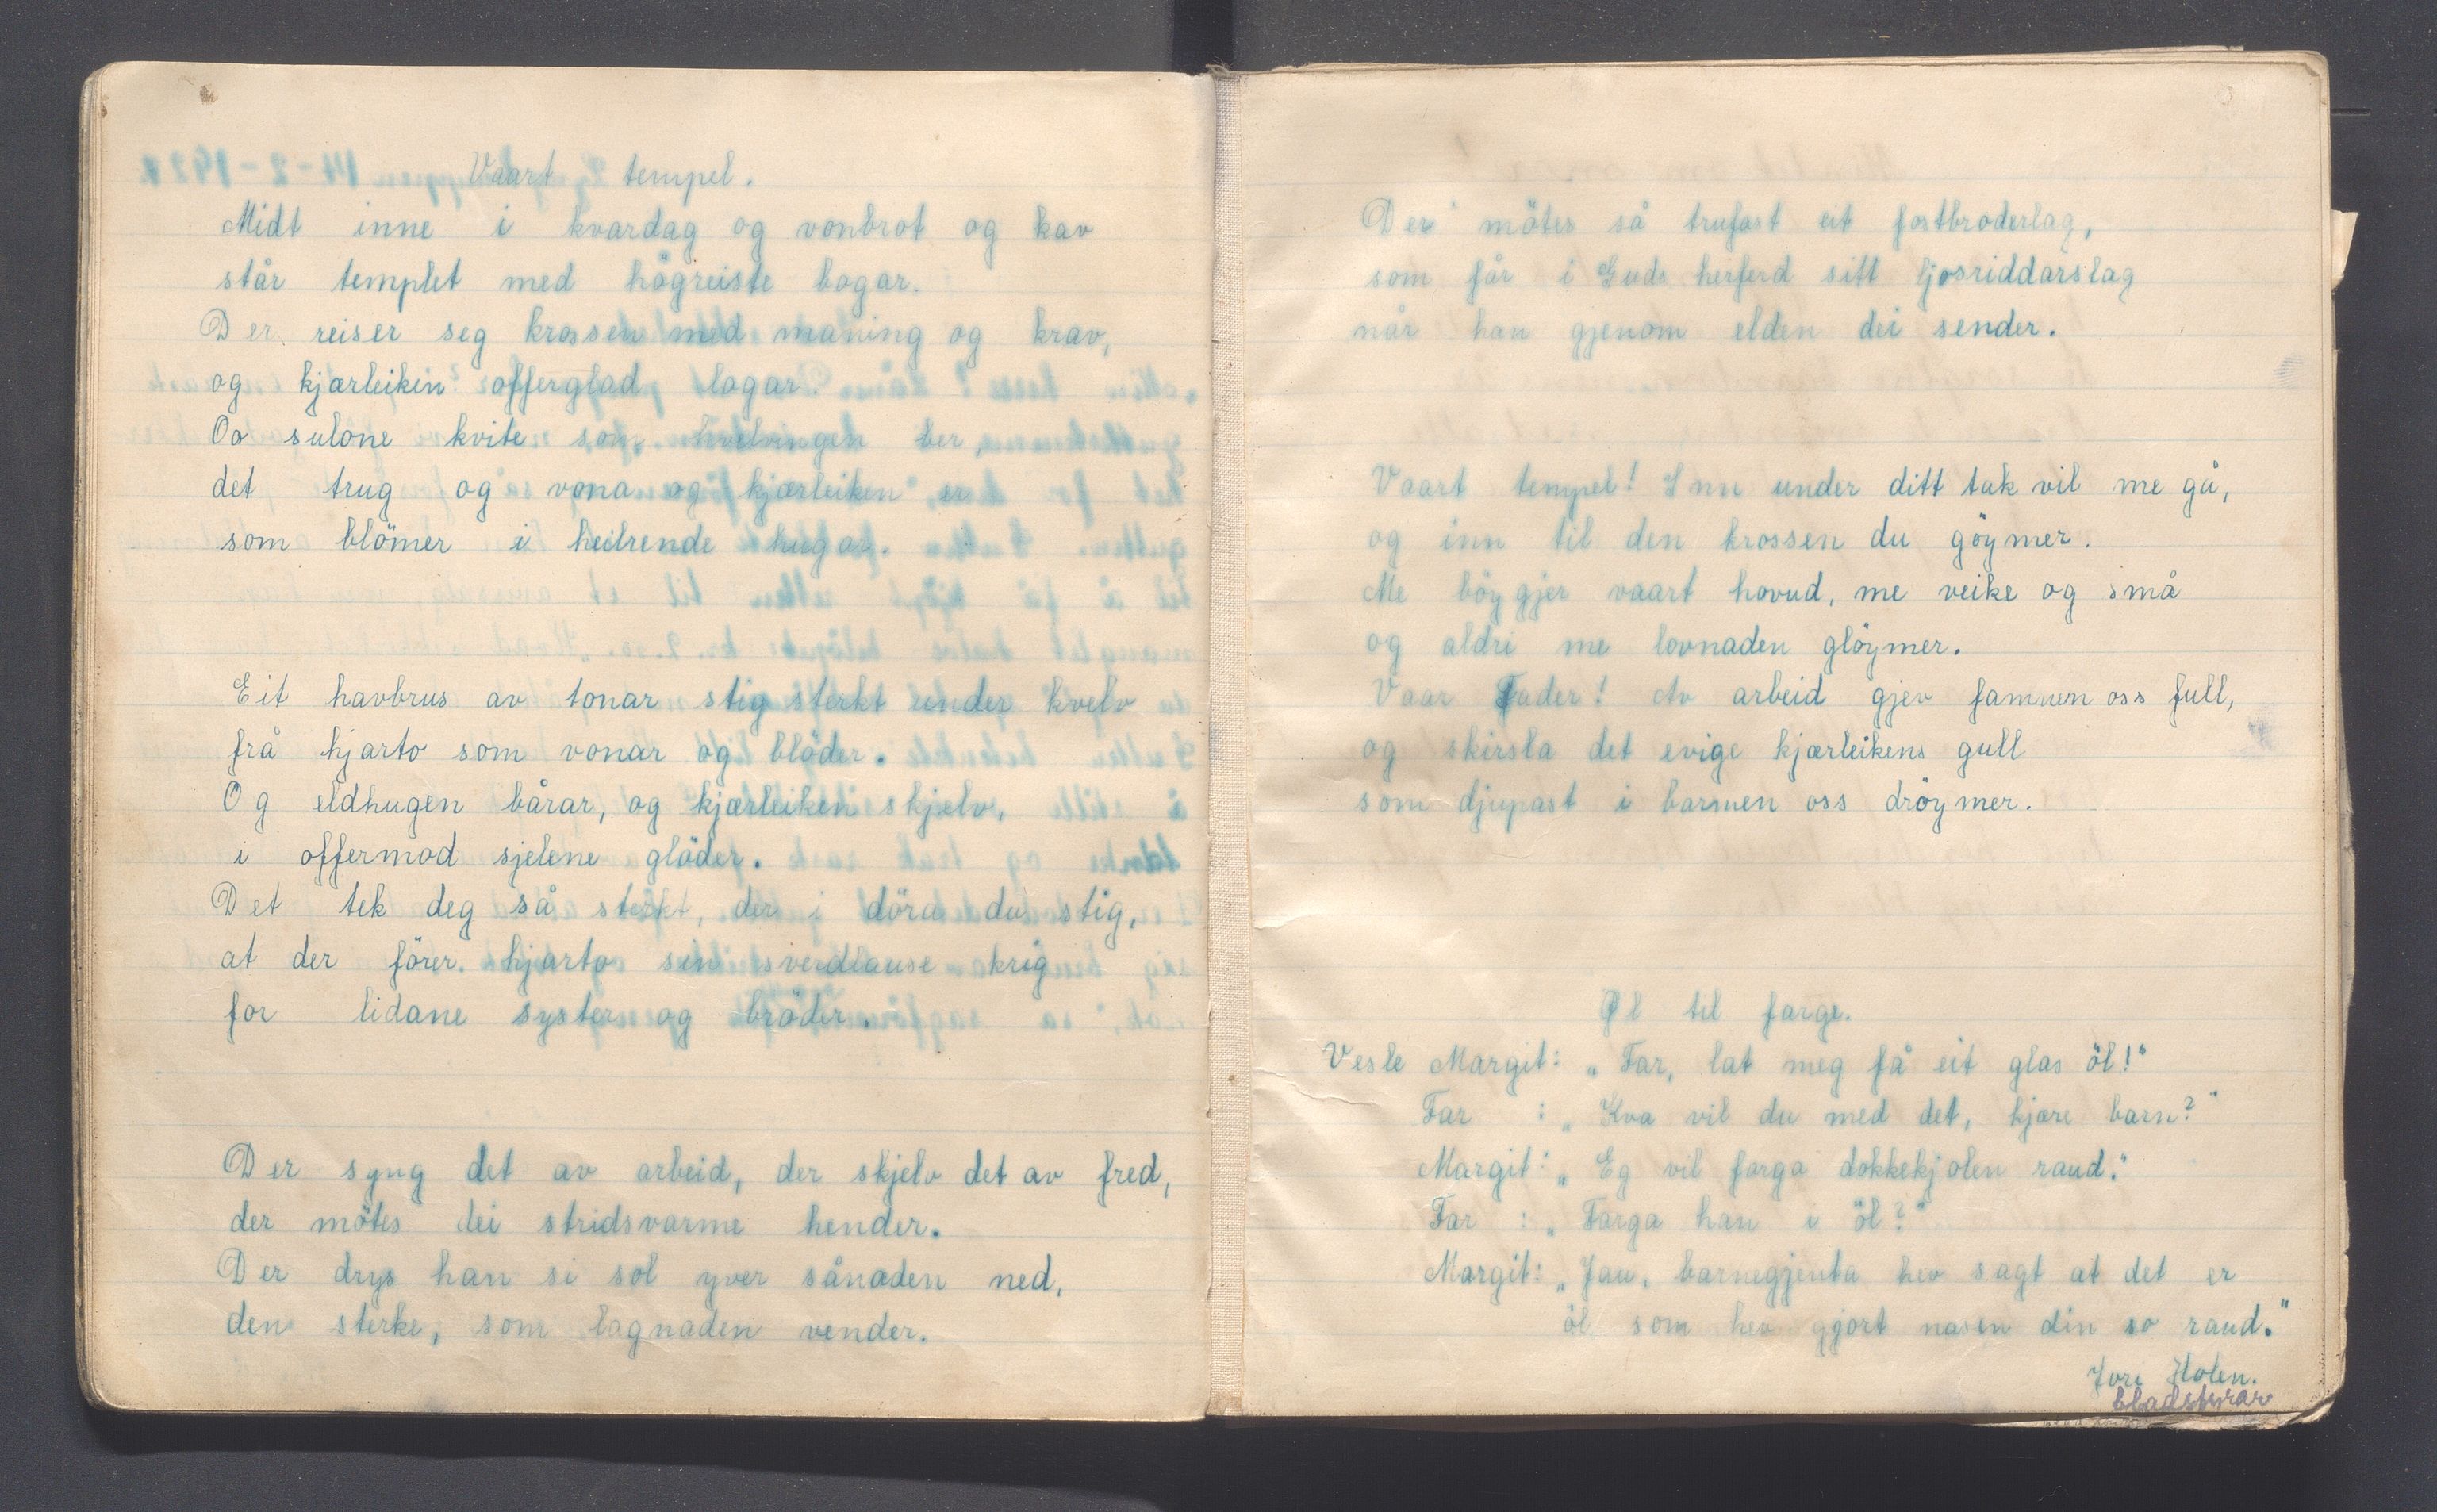 Vaart tempel.
Midt inne i kvardag og vonbrot og kav
står templet med högreiste bogar.
Der reiser seg krossen med maning og krav,
og kjærleikin offerglad logar.
Oo sulone kvite som hvelvingen ber
det trug og vona og kjærleiken er
som blömer i heilrende hugar.
Eit havbrus av tonar stig sterkt under kvelv
frå hjarto som vonar og blöder.
Og eldhugen bårar, og kjærleiken skjelv,
i offermod sjelene glöder.
Det tek deg så sterkt, der i döra du stig,
at der förer hjarto sin sverdlause krig
for lidane syster og bröder.
Der syng det av arbeid, der skjelv det av fred,
der mötes dei stridsvarme hender.
Der drys han si sol yver sånaden ned,
den sterke, som lagnaden vender.
Der mötes så trufast eit fostbroderlag,
som får i Guds herferd sitt ljosriddarslag
når han gjenom elden dei sender.
Vaart tempel! Inn under ditt tak vil me gå,
og inn til den krossen du göymer.
Me böygjer vaart hovud, me veike og små
og aldri me lovnaden glöymer.
Vaar Fader! Av arbeid gjev famnen oss full,
og skirsla det evige kjærleikens gull
som djupast i barmen oss dröymer.
Øl til farge.
Vesle Margit: „Far, lat meg få eit glas öl!"
Far : „Kva vil du med det, kjære barn?"
Margit: „Eg vil farga dokkekjolen raud."
Far : „Farga han i öl?"
Margit: „Jau, barnegjenta hev sagt at det er
öl som hev gjort nasen din so raud."
Holen.
bladstyrar